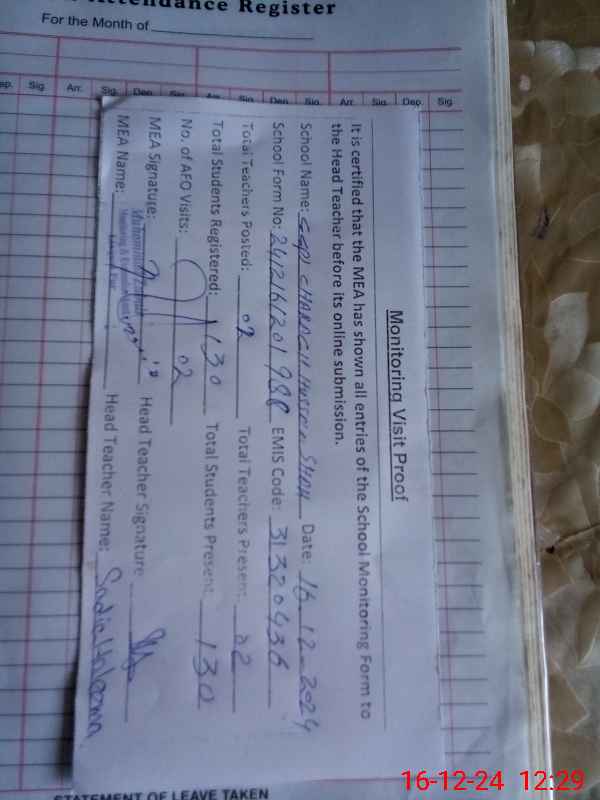 Attendance Register
For the Month of
Sig. Arr. Sig. Dep. Sig. Arr. Sig. Dep. Sig. Arr. Sig. Dep. Sig.
Monitoring Visit Proof
It is certified that the MEA has shown all entries of the School Monitoring Form to
the Head Teacher before its online submission.
School Name: Hussain Shah Date: 16-12-2024
School Form No: EMIS Code: 31320436
Total Teachers Posted: 02 Total Teachers Present: 02
Total Students Registered: 130 Total Students Present: 130
No. of AFO Visits: 02
MEA Signature: Head Teacher Signature
MEA Name: Head Teacher Name: Sadia
STATEMENT OF LEAVE TAKEN
16-12-24 12:29